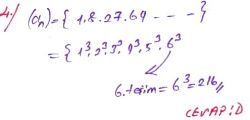 4./ (an)={ 1.8.27.64 - - - }
={ 1³.2³.3³.4³.5³.6³
6.terim=6³=216//
CEVAP:D